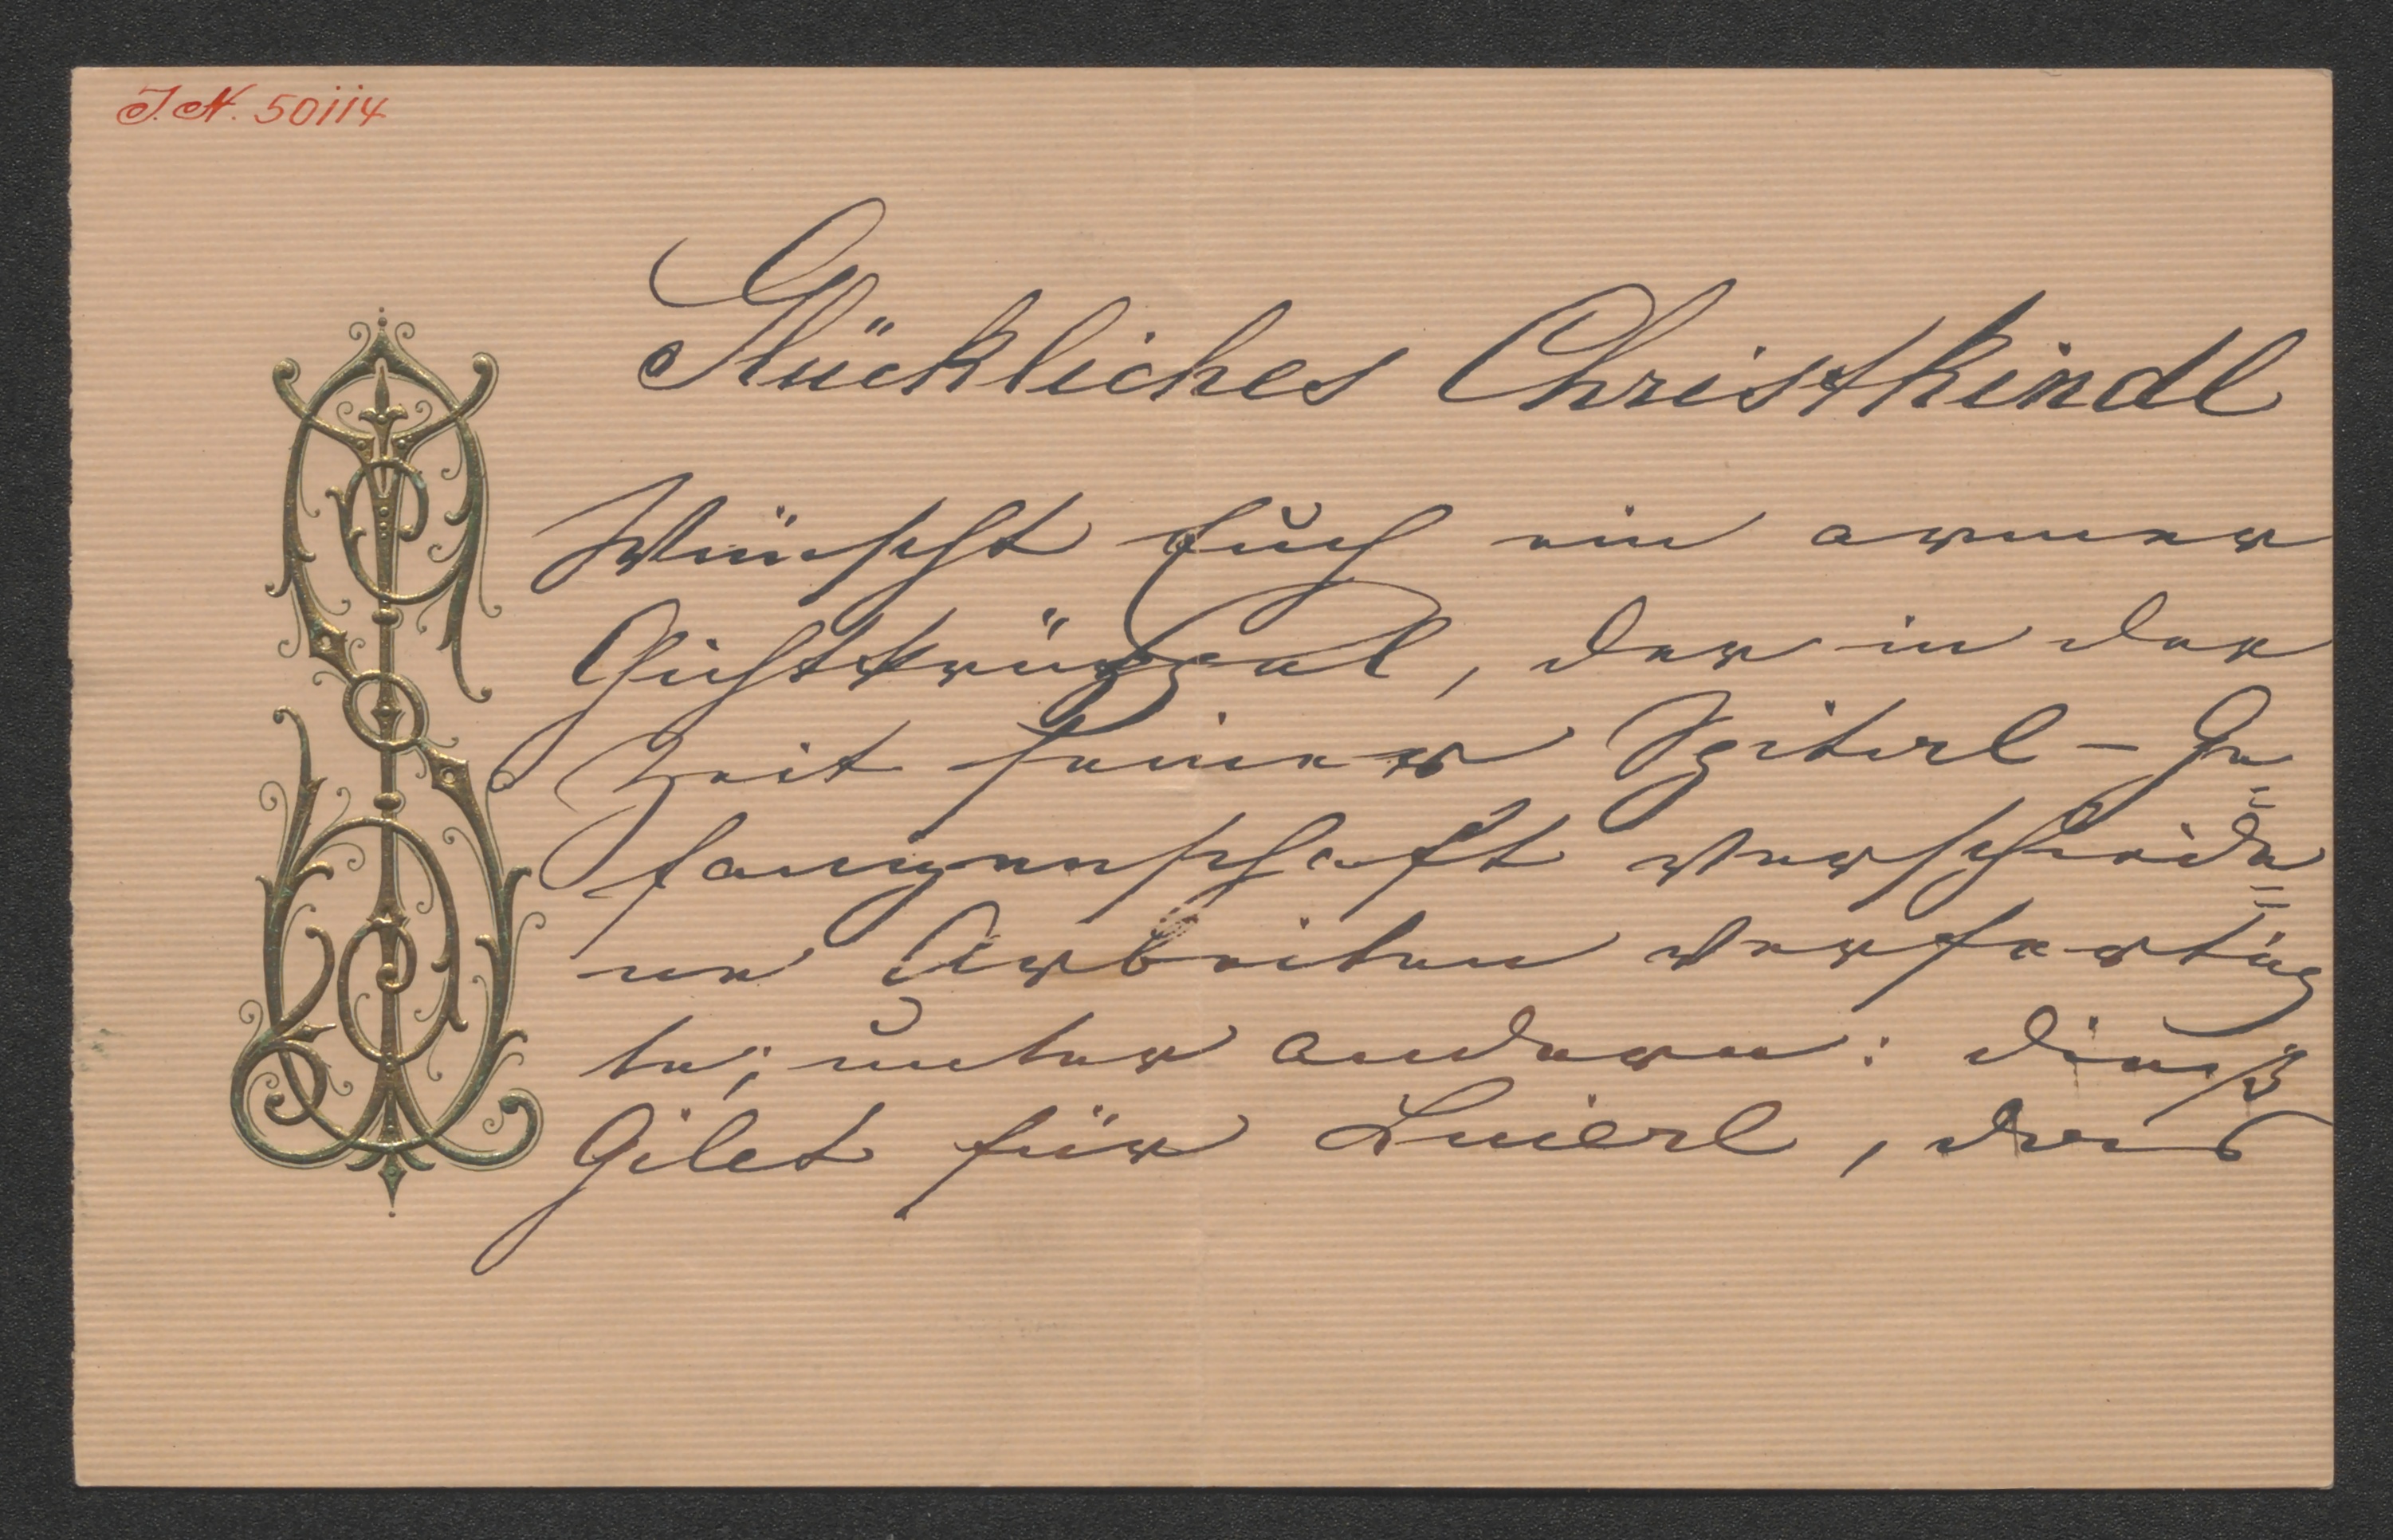 J. N. 50114
Glückliches Christkindl
Wünscht Euch ein armer
Gichtkrüppel, der in der
Zeit seiner Spiterl-Ge
fangenschaft verschiede
ne Arbeiten verfertig
te; unter andern: dieß
Gilet für Luierl, das